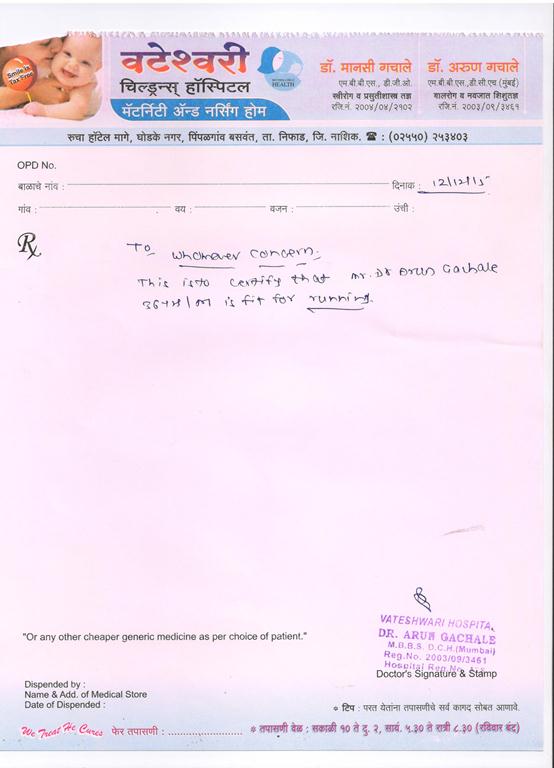 Smile is
Tax Free
वटेश्वरी
चिल्ड्रन्स् हॉस्पिटल
मॅटर्निटी ॲन्ड नर्सिंग होम
HEALTH
डॉ. मानसी गचाले
एम.बी.बी.एस., डी.जी.ओ.
स्त्रीरोग व प्रसुतीशास्त्र तज्ञ
रजि.नं. २००४/०४/२१०२
डॉ. अरुण गचाले
एम.बी.बी.एस.,डी.सी.एच (मुंबई)
बालरोग व नवजात शिशुतज्ञ
रजि.नं. २००३/०९/३४६१
रुचा हॉटेल मागे, घोडके नगर, पिंपळगांव बसवंत, ता. निफाड, जि. नाशिक. ☎ : (०२५५०) २५३४०३
OPD No.
बाळाचे नांव : दिनाक : 12/12/15
गांव : वय : वजन : उंची :
Rx
To whomever concern:
This is to certify that mr. Dr Arun Gachale
36 yr/m is fit for running.
VATESHWARI HOSPITAL
DR. ARUN GACHALE
M.B.B.S. D.C.H.(Mumbai)
Reg.No. 2003/09/3461
Hospital Reg.No
Doctor's Signature & Stamp
"Or any other cheaper generic medicine as per choice of patient."
Dispensed by :
Name & Add. of Medical Store
Date of Dispended :
* टिप : परत येतांना तपासणीचे सर्व कागद सोबत आणावे.
We Treat He Cures फेर तपासणी : ........................ * तपासणी वेळ : सकाळी १० ते दु. २, सायं. ५.३० ते रात्री ८.३० (रविवार बंद)